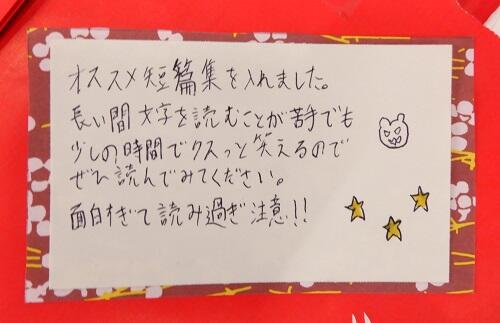 オススメ短篇集を入れました。
長い間文字を読むことが苦手でも
少しの時間でクスっと笑えるので
ぜひ読んでみてください。
面白すぎて読み過ぎ注意!!